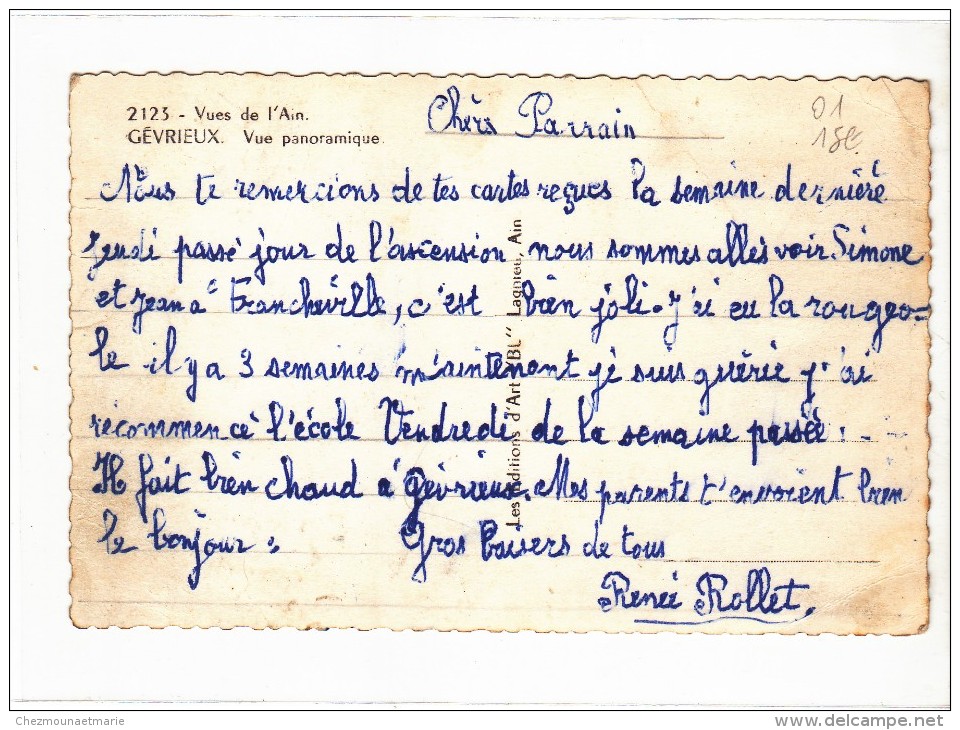 2123 - Vues de l'Ain.
GÉVRIEUX. Vue panoramique.
Chèrs Parrain
01
18€
Nous te remercions de tes cartes reçues la semaine dernière
jeudi passé jour de l'ascension nous sommes allés voir Simone
et Jean à Francheville, c'est bien joli. J'ai eu la rougeo-
le il y a 3 semaines m'aintenant je suis guérie j'ai
recommencé l'école Vendredi de la semaine passée.
Il fait bien chaud à Gévrieux. Mes parents t'envoient bien
le bonjour.
Gros baisers de tous
Renée Rollet.
Les Editions d'Art "YBL" Lagnieu, Ain
Chezmounaetmarie
www.delcampe.net